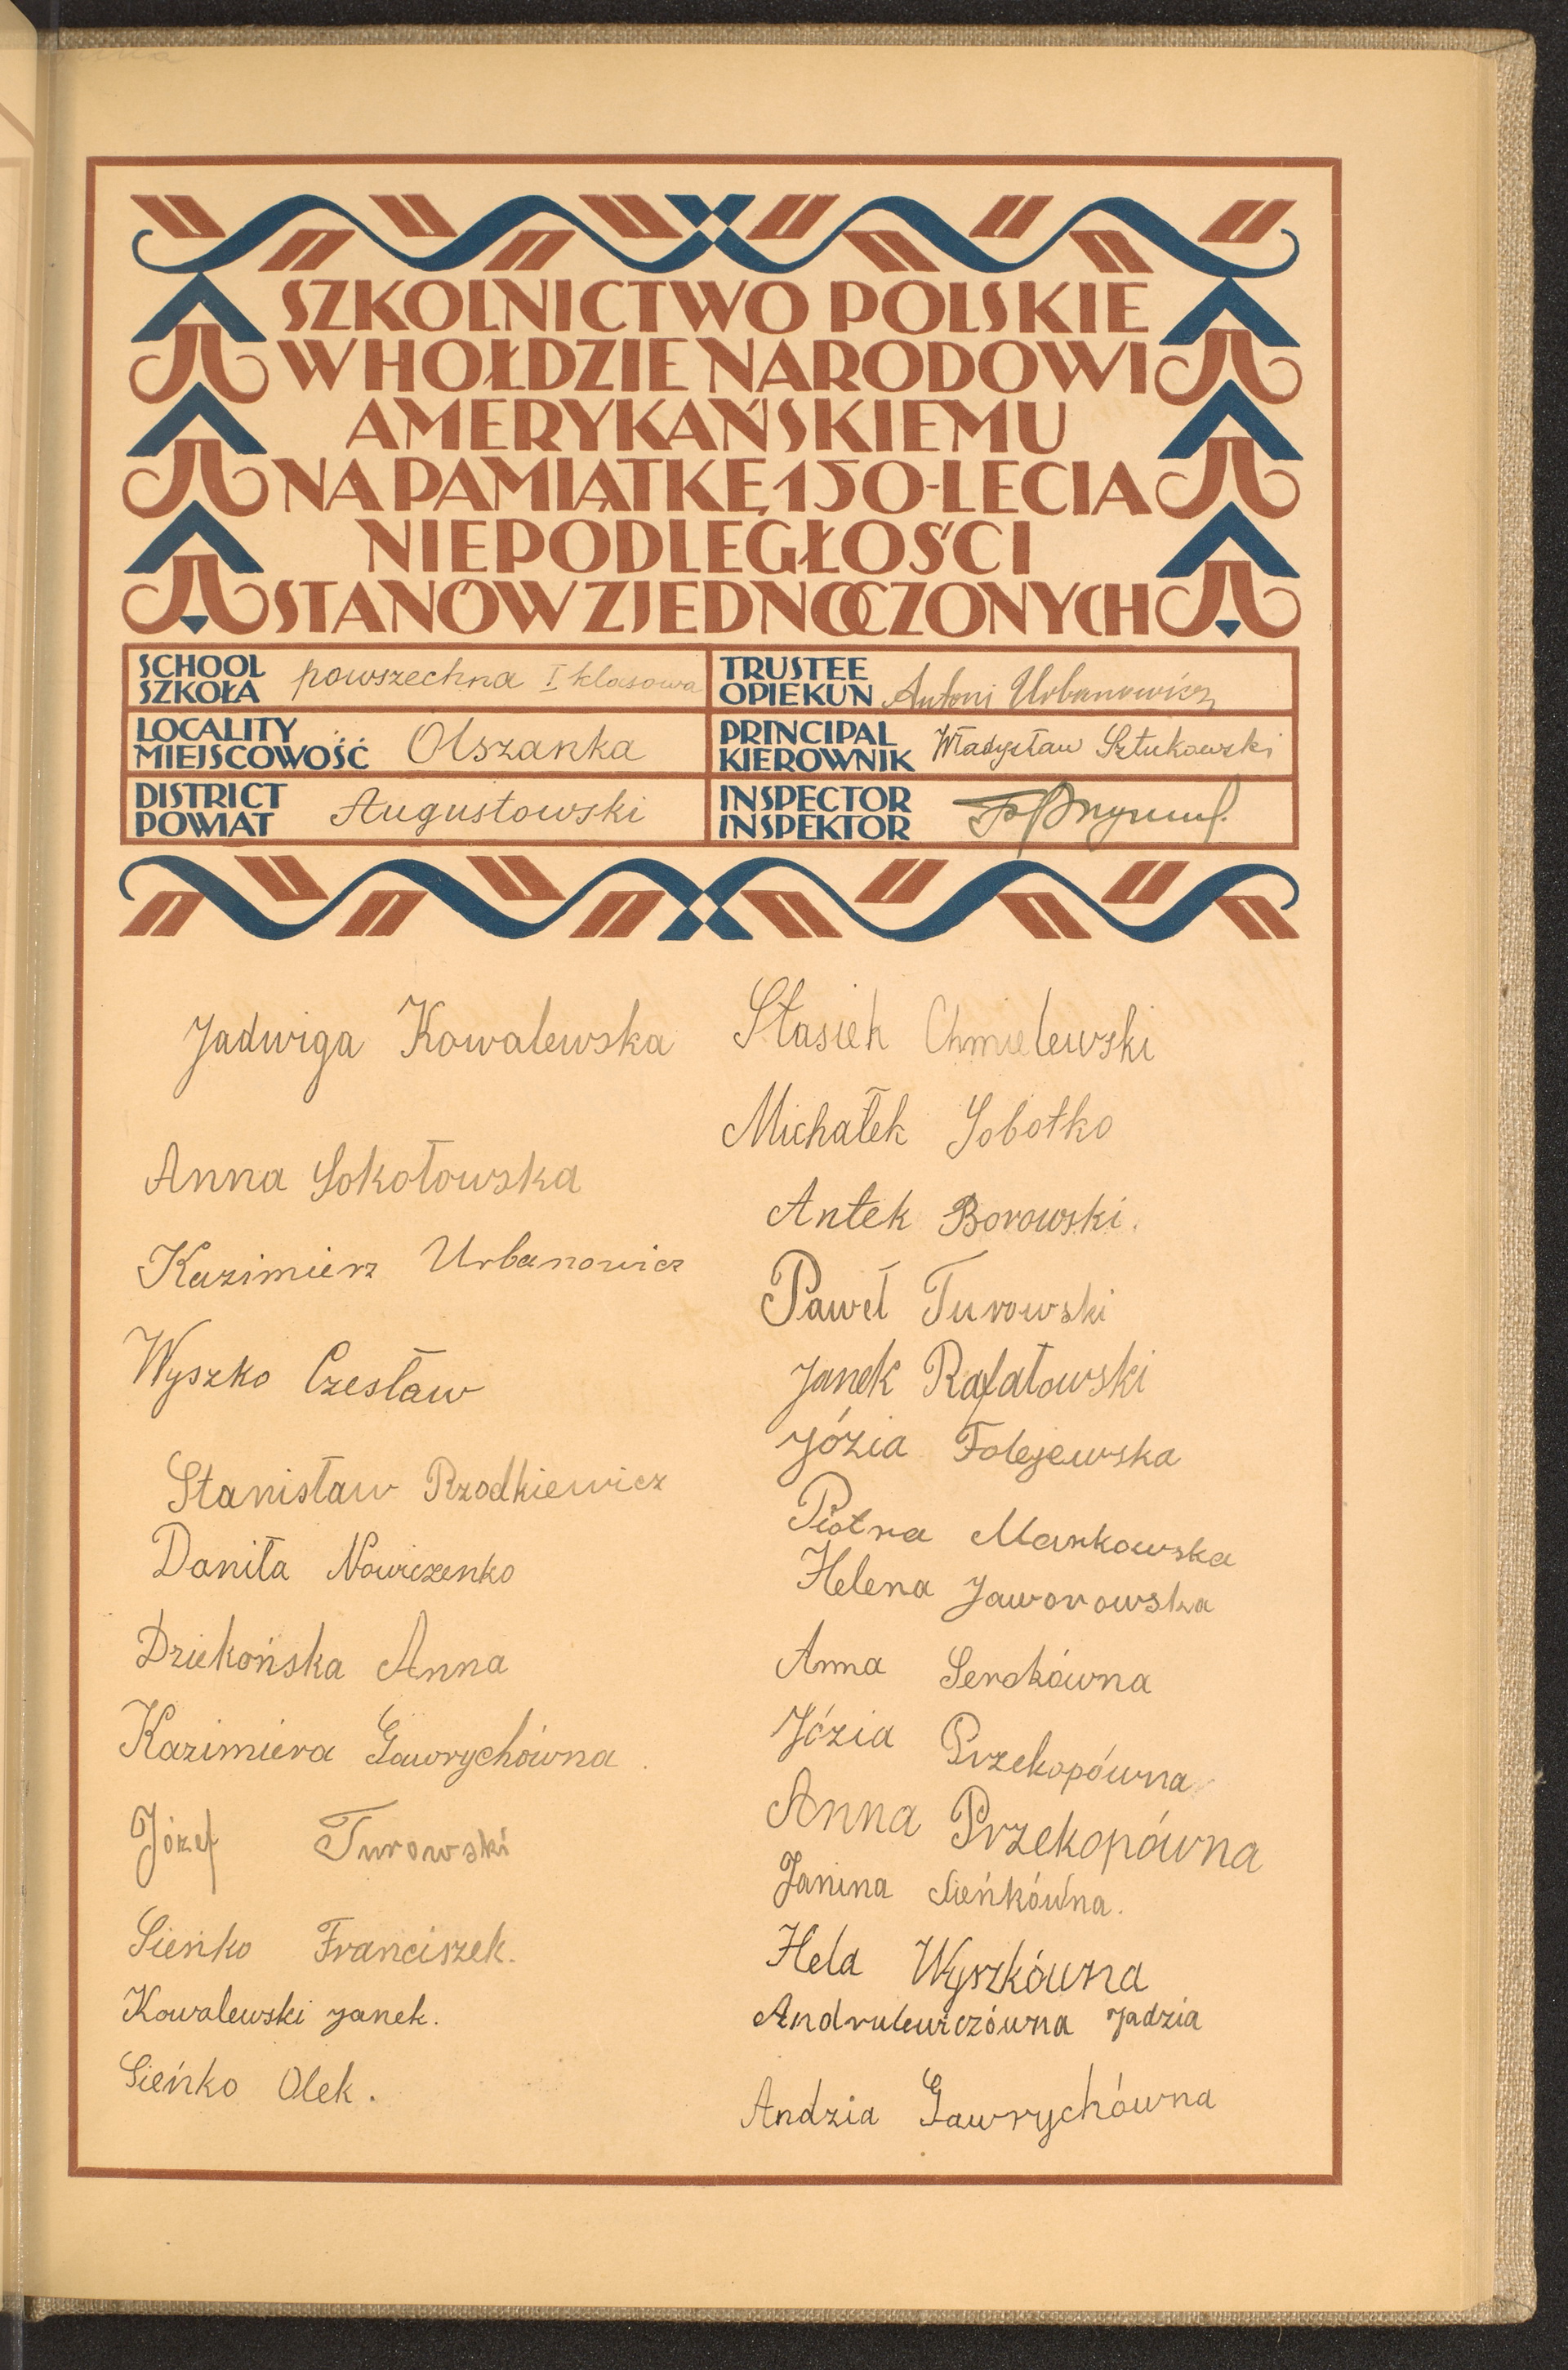 SZKOLNICTWO POLSKIE
W HOŁDZIE NARODOWI
AMERYKAŃSKIEMU
NA PAMIĄTKĘ 150-LECIA
NIEPODLEGŁOŚCI
STANÓW ZJEDNOCZONYCH
SCHOOL
SZKOŁA powszechna I klasowa
TRUSTEE
OPIEKUN Antoni Urbanowicz
LOCALITY
MIEJSCOWOŚĆ Olszanka
PRINCIPAL
KIEROWNIK Władysław Sztukowski
DISTRICT
POWIAT Augustowski
INSPECTOR
INSPEKTOR
Jadwiga Kowalewska
Anna Sokołowska
Kazimierz Urbanowicz
Wyszko Czesław
Stanisław Rzodkiewicz
Daniła Nowiczenko
Dziekońska Anna
Kazimiera Gawrychówna
Józef Turowski
Sieńko Franciszek.
Kowalewski Janek.
Sieńko Olek.
Stasiek Chmielewski
Michałek Sobotko
Antek Borowski.
Paweł Turowski
Janek Rafałowski
Józia Folejewska
Piotra Markowska
Helena Jaworowska
Anna Serokówna
Józia Przekopówna
Anna Przekopówna
Janina Sieńkówna.
Hela Wyszkówna
Andrulewiczówna Jadzia
Andzia Gawrychówna